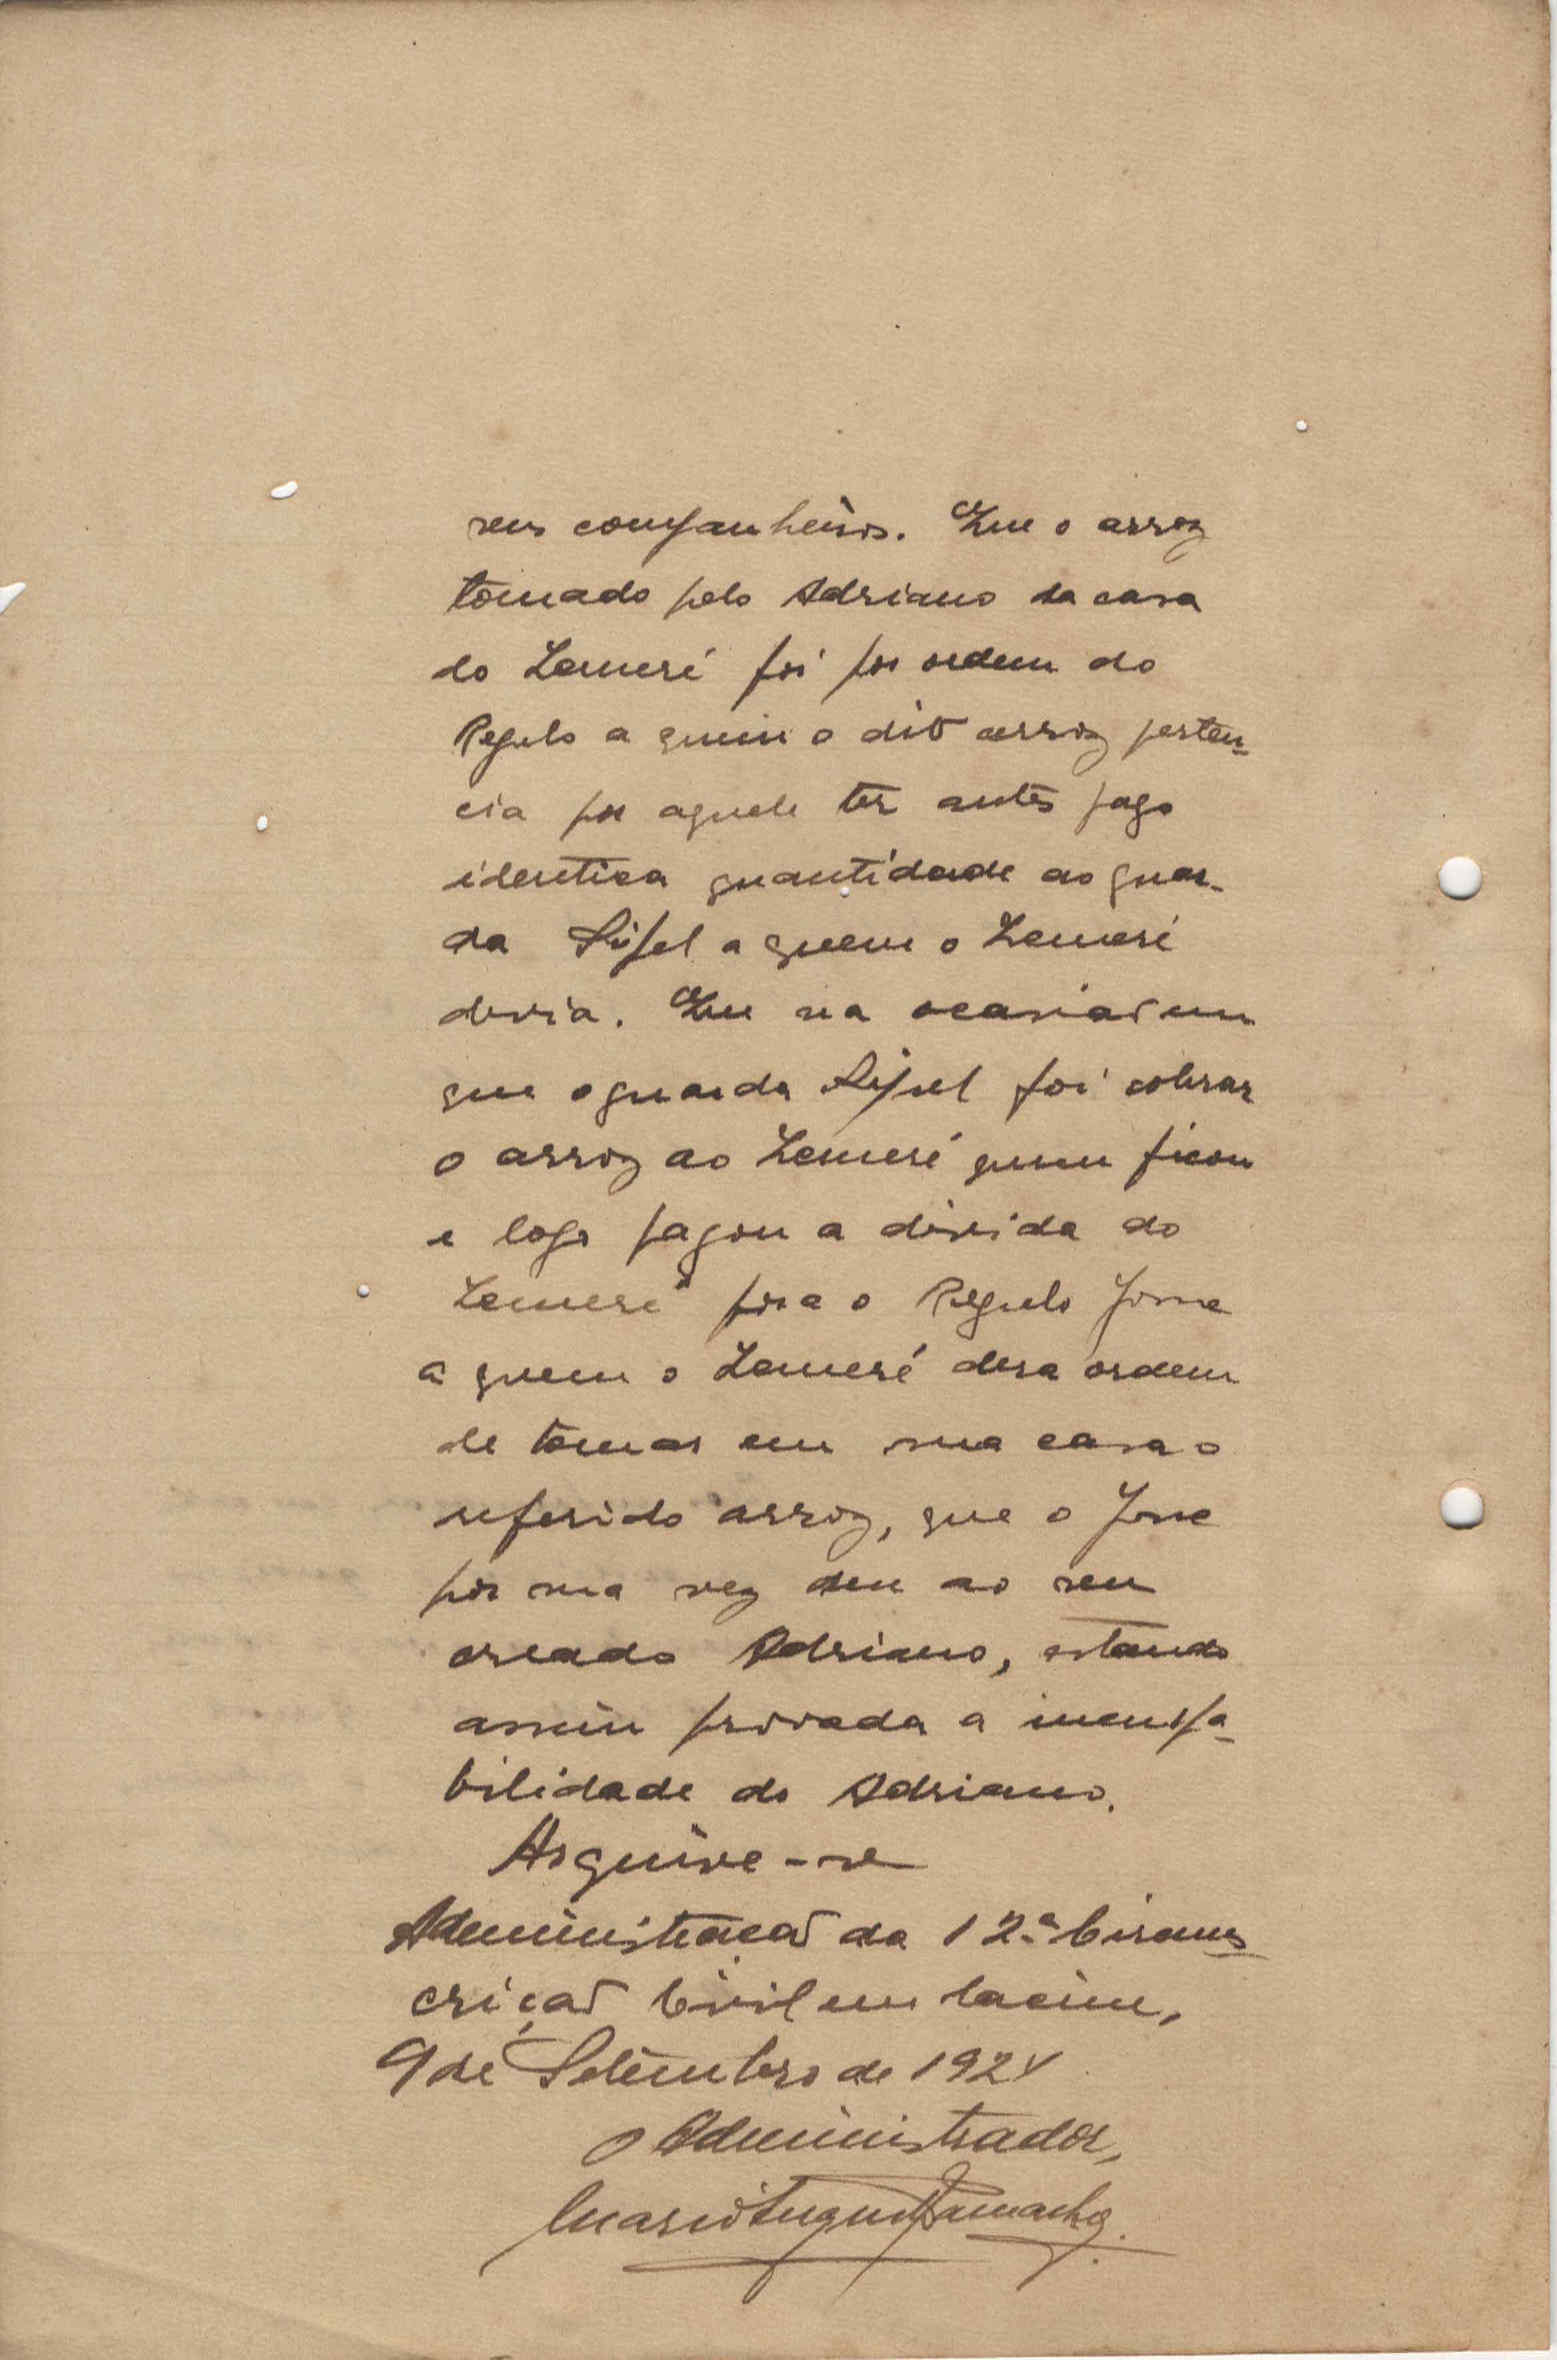 seus companheiros. Que o arroz
tomado pelo Adriano da casa
do Lemesé foi por ordem do
Regulo a quem o dito arroz perten-
cia por aquele ter antes pago
identica quantidade ao guar-
da a quem o Lemesé
devia. Que na ocasiaõ em
que o guarda foi cobrar
o arroz ao Lemesé quem ficou
e logo pagou a divida do
Lemesé fora o Regulo Jome
a quem o Lemesé dera ordem
de tomar em sua casa o
referido arroz, que o Jome
por sua vez deu ao seu
creado Adriano, estando
assim provada a inculpa-
bilidade do Adriano.
Arquive-se
Administraçaõ da 12.ª Circuns-
criçaõ Civil em Cacine,
9 de Setembro de 192
O Administrador,